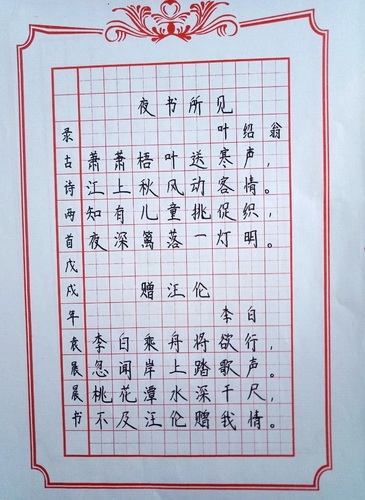 夜书所见
叶绍翁
萧萧梧叶送寒声,
江上秋风动客情。
知有儿童挑促织,
夜深篱落一灯明。
赠汪伦
李白
李白乘舟将欲行,
忽闻岸上踏歌声。
桃花潭水深千尺,
不及汪伦赠我情。
录古诗两首戊戌年袁晨晨书